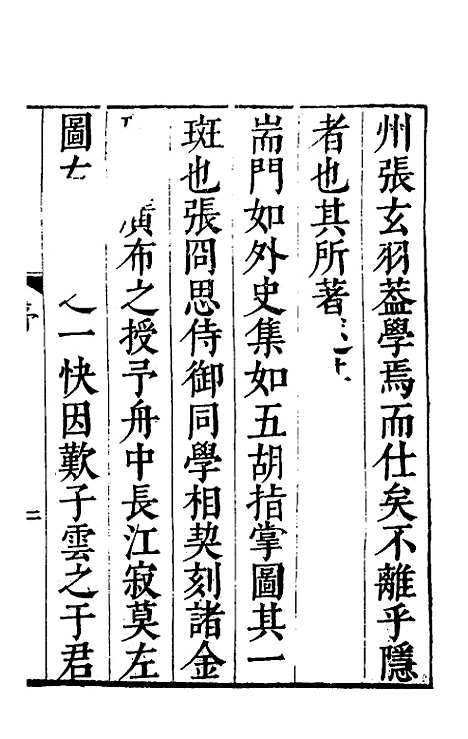 州張玄羽葢學焉而仕矣不離乎隱
者也其所著
耑門如外史集如五胡指掌圖其一
斑也張冏思侍御同學相契刻諸金
廣布之授予舟中長江寂莫左
圖右之一快因歎子雲之于君
序
二